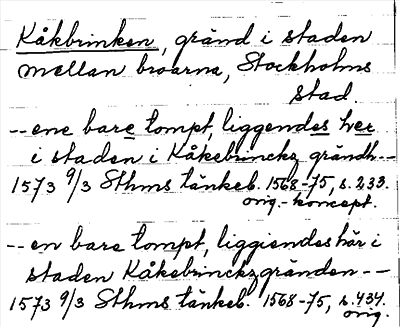 Kåkbrinken, gränd i staden
mellan broarna, Stockholms
stad
-- ene bare tompt, liggendes her
i staden i Kåkebrinckz grändh --
1573 9/3 Sthms tänkeb. 1568-75, s. 233.
orig.-koncept.
-- en bare tompt, liggiendes här i
staden Kåkebrinckz gränden --
1573 9/3 Sthms tänkeb. 1568-75, s. 434.
orig.